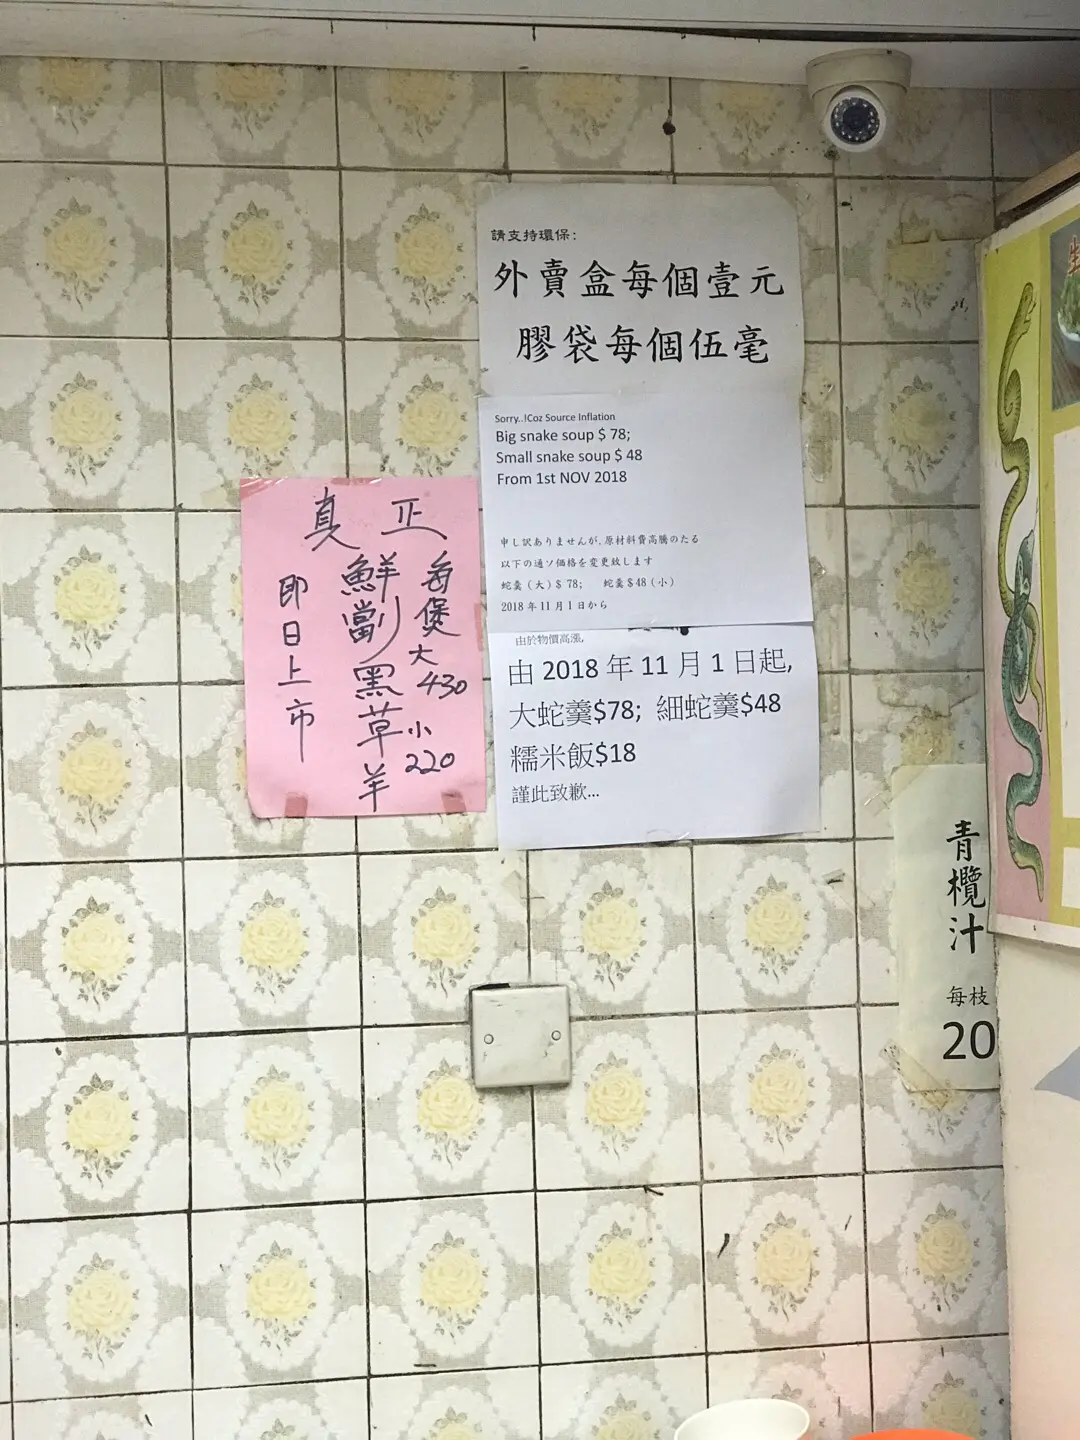 請支持環保:
外賣盒每個壹元
膠袋每個伍毫
Sorry..!Coz Source Inflation
Big snake soup $ 78;
Small snake soup $ 48
From 1st NOV 2018
申し訳ありませんが,原材料費高騰のたる
以下の通ソ価格を変更致します
蛇羹（大）$ 78; 蛇羹$48（小）
2018 年 11 月 1 日から
由於物價高漲,
由 2018 年 11 月 1 日起,
大蛇羹$78; 細蛇羹$48
糯米飯$18
謹此致歉...
真正
每煲大430 小220
鮮劏黑草羊
即日上市
青欖汁
每枝
20
生